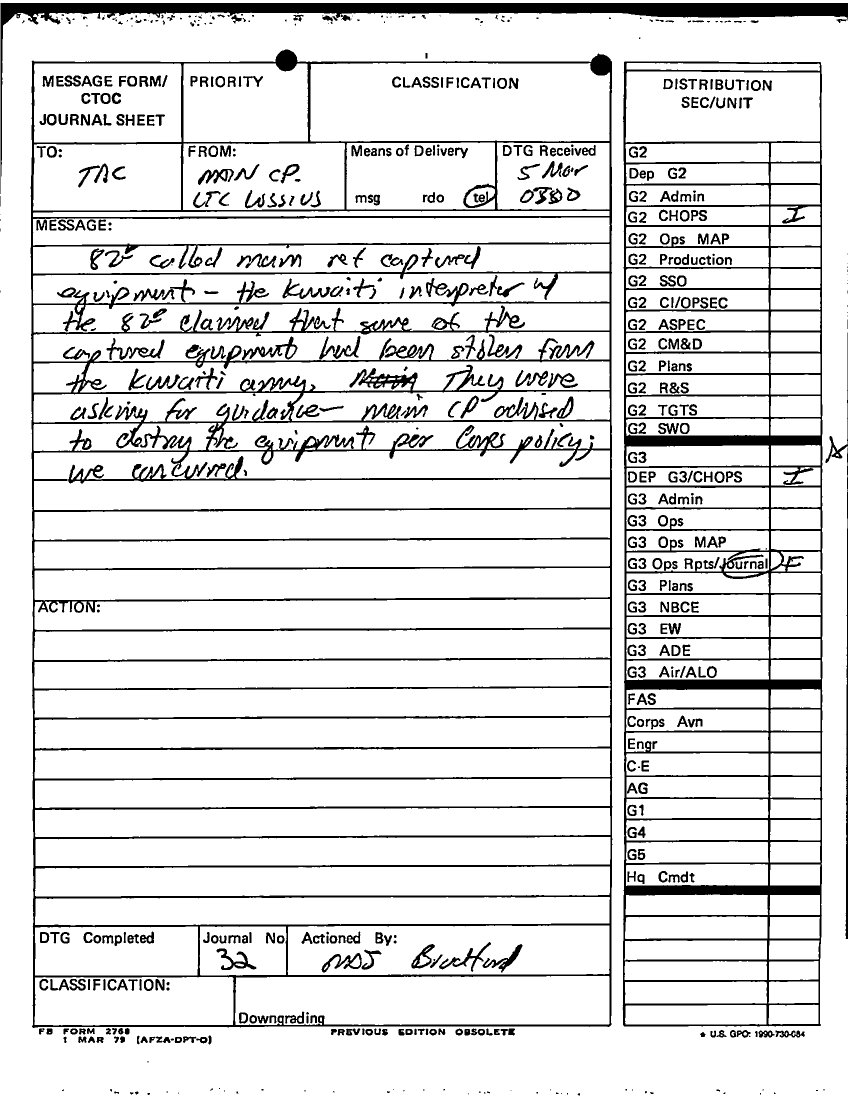 MESSAGE FORM/
CTOC
JOURNAL SHEET
PRIORITY
CLASSIFICATION
TO:
TAC
FROM:
MAIN CP.
LTC
Means of Delivery
msg rdo tel
DTG Received
5 Mar
0300
MESSAGE:
82d called main ref captured
equipment - the Kuwaiti interpreter w/
the 82d claimed that some of the
captured equipment had been stolen from
the Kuwaiti army. Main They were
asking for guidance - main CP advised
to destroy the equipment per Corps policy;
we concurred.
ACTION:
DTG Completed
Journal No
32
Actioned By:
MAJ Bradford
CLASSIFICATION:
Downgrading
FB FORM 2768
1 MAR 79 (AFZA-DPT-O)
PREVIOUS EDITION OBSOLETE
DISTRIBUTION
SEC/UNIT
G2
Dep G2
G2 Admin
G2 CHOPS I
G2 Ops MAP
G2 Production
G2 SSO
G2 CI/OPSEC
G2 ASPEC
G2 CM&D
G2 Plans
G2 R&S
G2 TGTS
G2 SWO
G3
DEP G3/CHOPS I
G3 Admin
G3 Ops
G3 Ops MAP
G3 Ops Rpts/Journal F
G3 Plans
G3 NBCE
G3 EW
G3 ADE
G3 Air/ALO
FAS
Corps Avn
Engr
C-E
AG
G1
G4
G5
Hq Cmdt
★ U.S. GPO: 1990-730-084